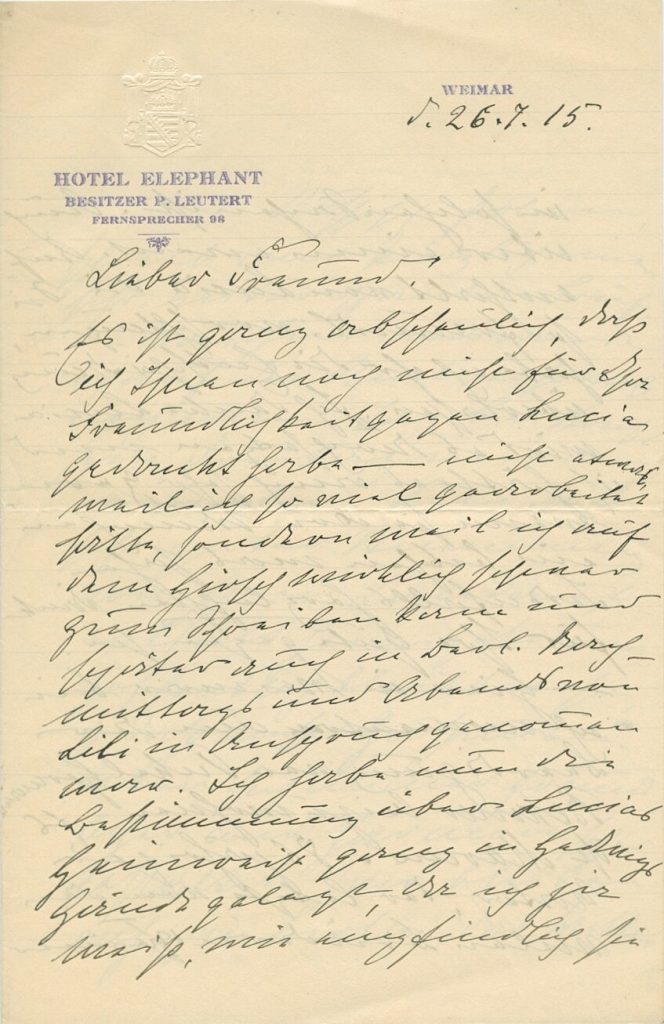 WEIMAR
d. 26.7.15.
HOTEL ELEPHANT
BESITZER P. LEUTERT
FERNSPRECHER 98
Lieber Freund!
Es ist ganz abscheulich, daß
ich Ihnen noch nicht für Ihre
Freundlichkeit gegen Lucia
gedankt habe — nicht etwa,
weil ich so viel gearbeitet
hätte, sondern weil ich auf
dem Hirsch wirklich schwer
zum Schreiben kam und
später auch in Berl. Nach-
mittags und Abends von
Lili in Anspruch genommen
war. Ich habe nun die
Bestimmung über Lucias
Heimreise ganz in Hedwigs
Hände gelegt, da ich ja
weiß, wie empfindlich sie